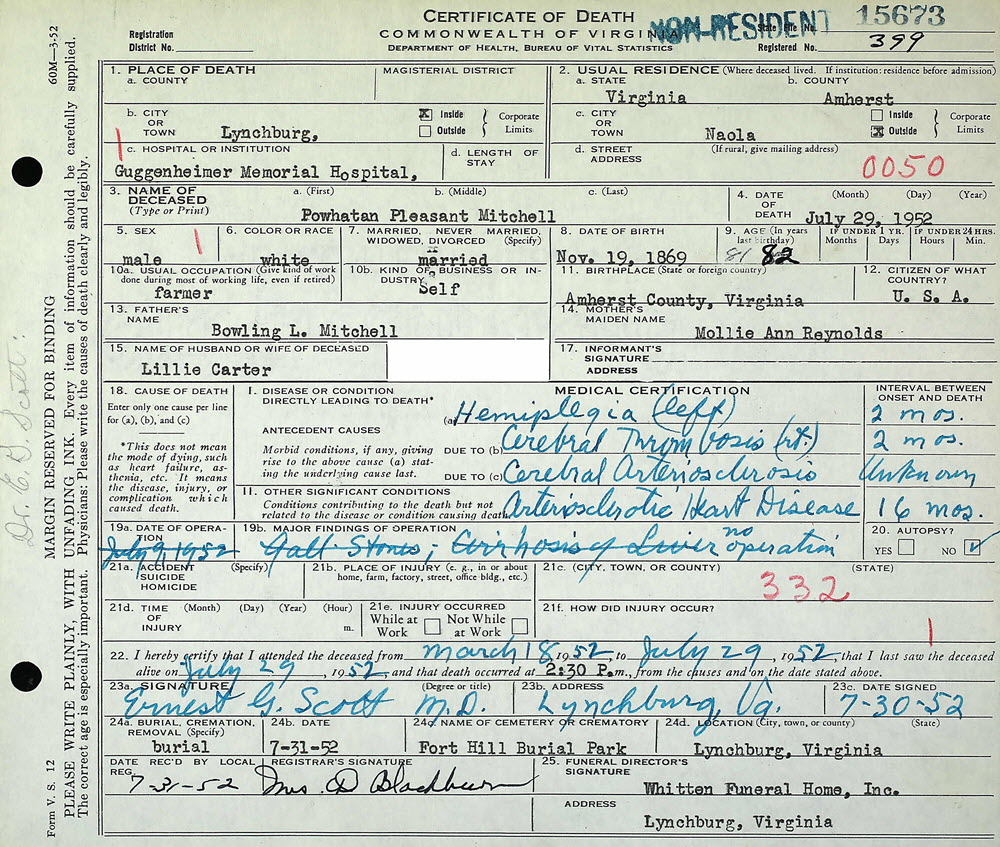 CERTIFICATE OF DEATH
COMMONWEALTH OF VIRGINIA
DEPARTMENT OF HEALTH, BUREAU OF VITAL STATISTICS
Registration
District No.
NON-RESIDENT
State File No. 15673
Registered No. 399
1. PLACE OF DEATH
a. COUNTY
MAGISTERIAL DISTRICT
2. USUAL RESIDENCE (Where deceased lived. If institution: residence before admission)
a. STATE b. COUNTY
Virginia Amherst
b. CITY OR TOWN Lynchburg,
☒ Inside
☐ Outside
Corporate Limits
c. CITY OR TOWN Naola
☐ Inside
☒ Outside
Corporate Limits
c. HOSPITAL OR INSTITUTION
Guggenheimer Memorial Hospital,
d. LENGTH OF STAY
d. STREET ADDRESS (If rural, give mailing address)
0050
3. NAME OF DECEASED (Type or Print)
a. (First) b. (Middle) c. (Last)
Powhatan Pleasant Mitchell
4. DATE OF DEATH (Month) (Day) (Year)
July 29, 1952
5. SEX
male
1
6. COLOR OR RACE
white
7. MARRIED, NEVER MARRIED, WIDOWED, DIVORCED (Specify)
married
8. DATE OF BIRTH
Nov. 19, 1869
9. AGE (In years last birthday)
81 82
IF UNDER 1 YR.
Months Days
IF UNDER 24 HRS.
Hours Min.
10a. USUAL OCCUPATION (Give kind of work done during most of working life, even if retired)
farmer
10b. KIND OF BUSINESS OR INDUSTRY
Self
11. BIRTHPLACE (State or foreign country)
Amherst County, Virginia
12. CITIZEN OF WHAT COUNTRY?
U. S. A.
13. FATHER'S NAME
Bowling L. Mitchell
14. MOTHER'S MAIDEN NAME
Mollie Ann Reynolds
15. NAME OF HUSBAND OR WIFE OF DECEASED
Lillie Carter
17. INFORMANT'S SIGNATURE
ADDRESS
18. CAUSE OF DEATH
Enter only one cause per line for (a), (b), and (c)
*This does not mean the mode of dying, such as heart failure, asthenia, etc. It means the disease, injury, or complication which caused death.
MEDICAL CERTIFICATION
INTERVAL BETWEEN ONSET AND DEATH
I. DISEASE OR CONDITION DIRECTLY LEADING TO DEATH*
(a) Hemiplegia (left) 2 mos.
ANTECEDENT CAUSES
Morbid conditions, if any, giving rise to the above cause (a) stating the underlying cause last.
DUE TO (b) Cerebral Thrombosis (rt.) 2 mos.
DUE TO (c) Cerebral Arteriosclerosis Unknown
II. OTHER SIGNIFICANT CONDITIONS
Conditions contributing to the death but not related to the disease or condition causing death.
Arteriosclerotic Heart Disease 16 mos.
19a. DATE OF OPERATION
July 9, 1952
19b. MAJOR FINDINGS OF OPERATION
Gall Stones; Cirrhosis of Liver no operation
20. AUTOPSY?
YES ☐ NO ☑
21a. ACCIDENT SUICIDE HOMICIDE (Specify)
21b. PLACE OF INJURY (e. g., in or about home, farm, factory, street, office bldg., etc.)
21c. (CITY, TOWN, OR COUNTY) (STATE)
332
21d. TIME OF INJURY (Month) (Day) (Year) (Hour) m.
21e. INJURY OCCURRED
While at Work ☐ Not While at Work ☐
21f. HOW DID INJURY OCCUR?
22. I hereby certify that I attended the deceased from March 18, 1952, to July 29, 1952, that I last saw the deceased
alive on July 29, 1952, and that death occurred at 2:30 P.m., from the causes and on the date stated above.
23a. SIGNATURE (Degree or title)
Ernest G. Scott M.D.
23b. ADDRESS
Lynchburg, Va.
23c. DATE SIGNED
7-30-52
24a. BURIAL, CREMATION, REMOVAL (Specify)
burial
24b. DATE
7-31-52
24c. NAME OF CEMETERY OR CREMATORY
Fort Hill Burial Park
24d. LOCATION (City, town, or county) (State)
Lynchburg, Virginia
DATE REC'D BY LOCAL REG.
7-31-52
REGISTRAR'S SIGNATURE
Mrs. D Blackburn
25. FUNERAL DIRECTOR'S SIGNATURE
Whitten Funeral Home, Inc.
ADDRESS
Lynchburg, Virginia
60M—3-52
Form V. S. 12
MARGIN RESERVED FOR BINDING
PLEASE WRITE PLAINLY, WITH UNFADING INK. Every item of information should be carefully supplied.
The correct age is especially important. Physicians: Please write the causes of death clearly and legibly.
Dr. E. G. Scott: